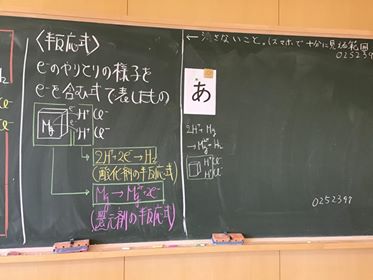 〈半反応式〉
e⁻のやりとりの様子を
e⁻を含む式で表したもの
Mg
e⁻ H⁺ Cl⁻
e⁻ H⁺ Cl⁻
2H⁺+2e⁻→H₂
(酸化剤の半反応式)
Mg→Mg²⁺+2e⁻
(還元剤の半反応式)
←消さないこと。(スマホで十分に見える範囲
0252397
あ
2H⁺+Mg
→Mg²⁺+H₂
H⁺Cl⁻
H⁺Cl⁻
0252397